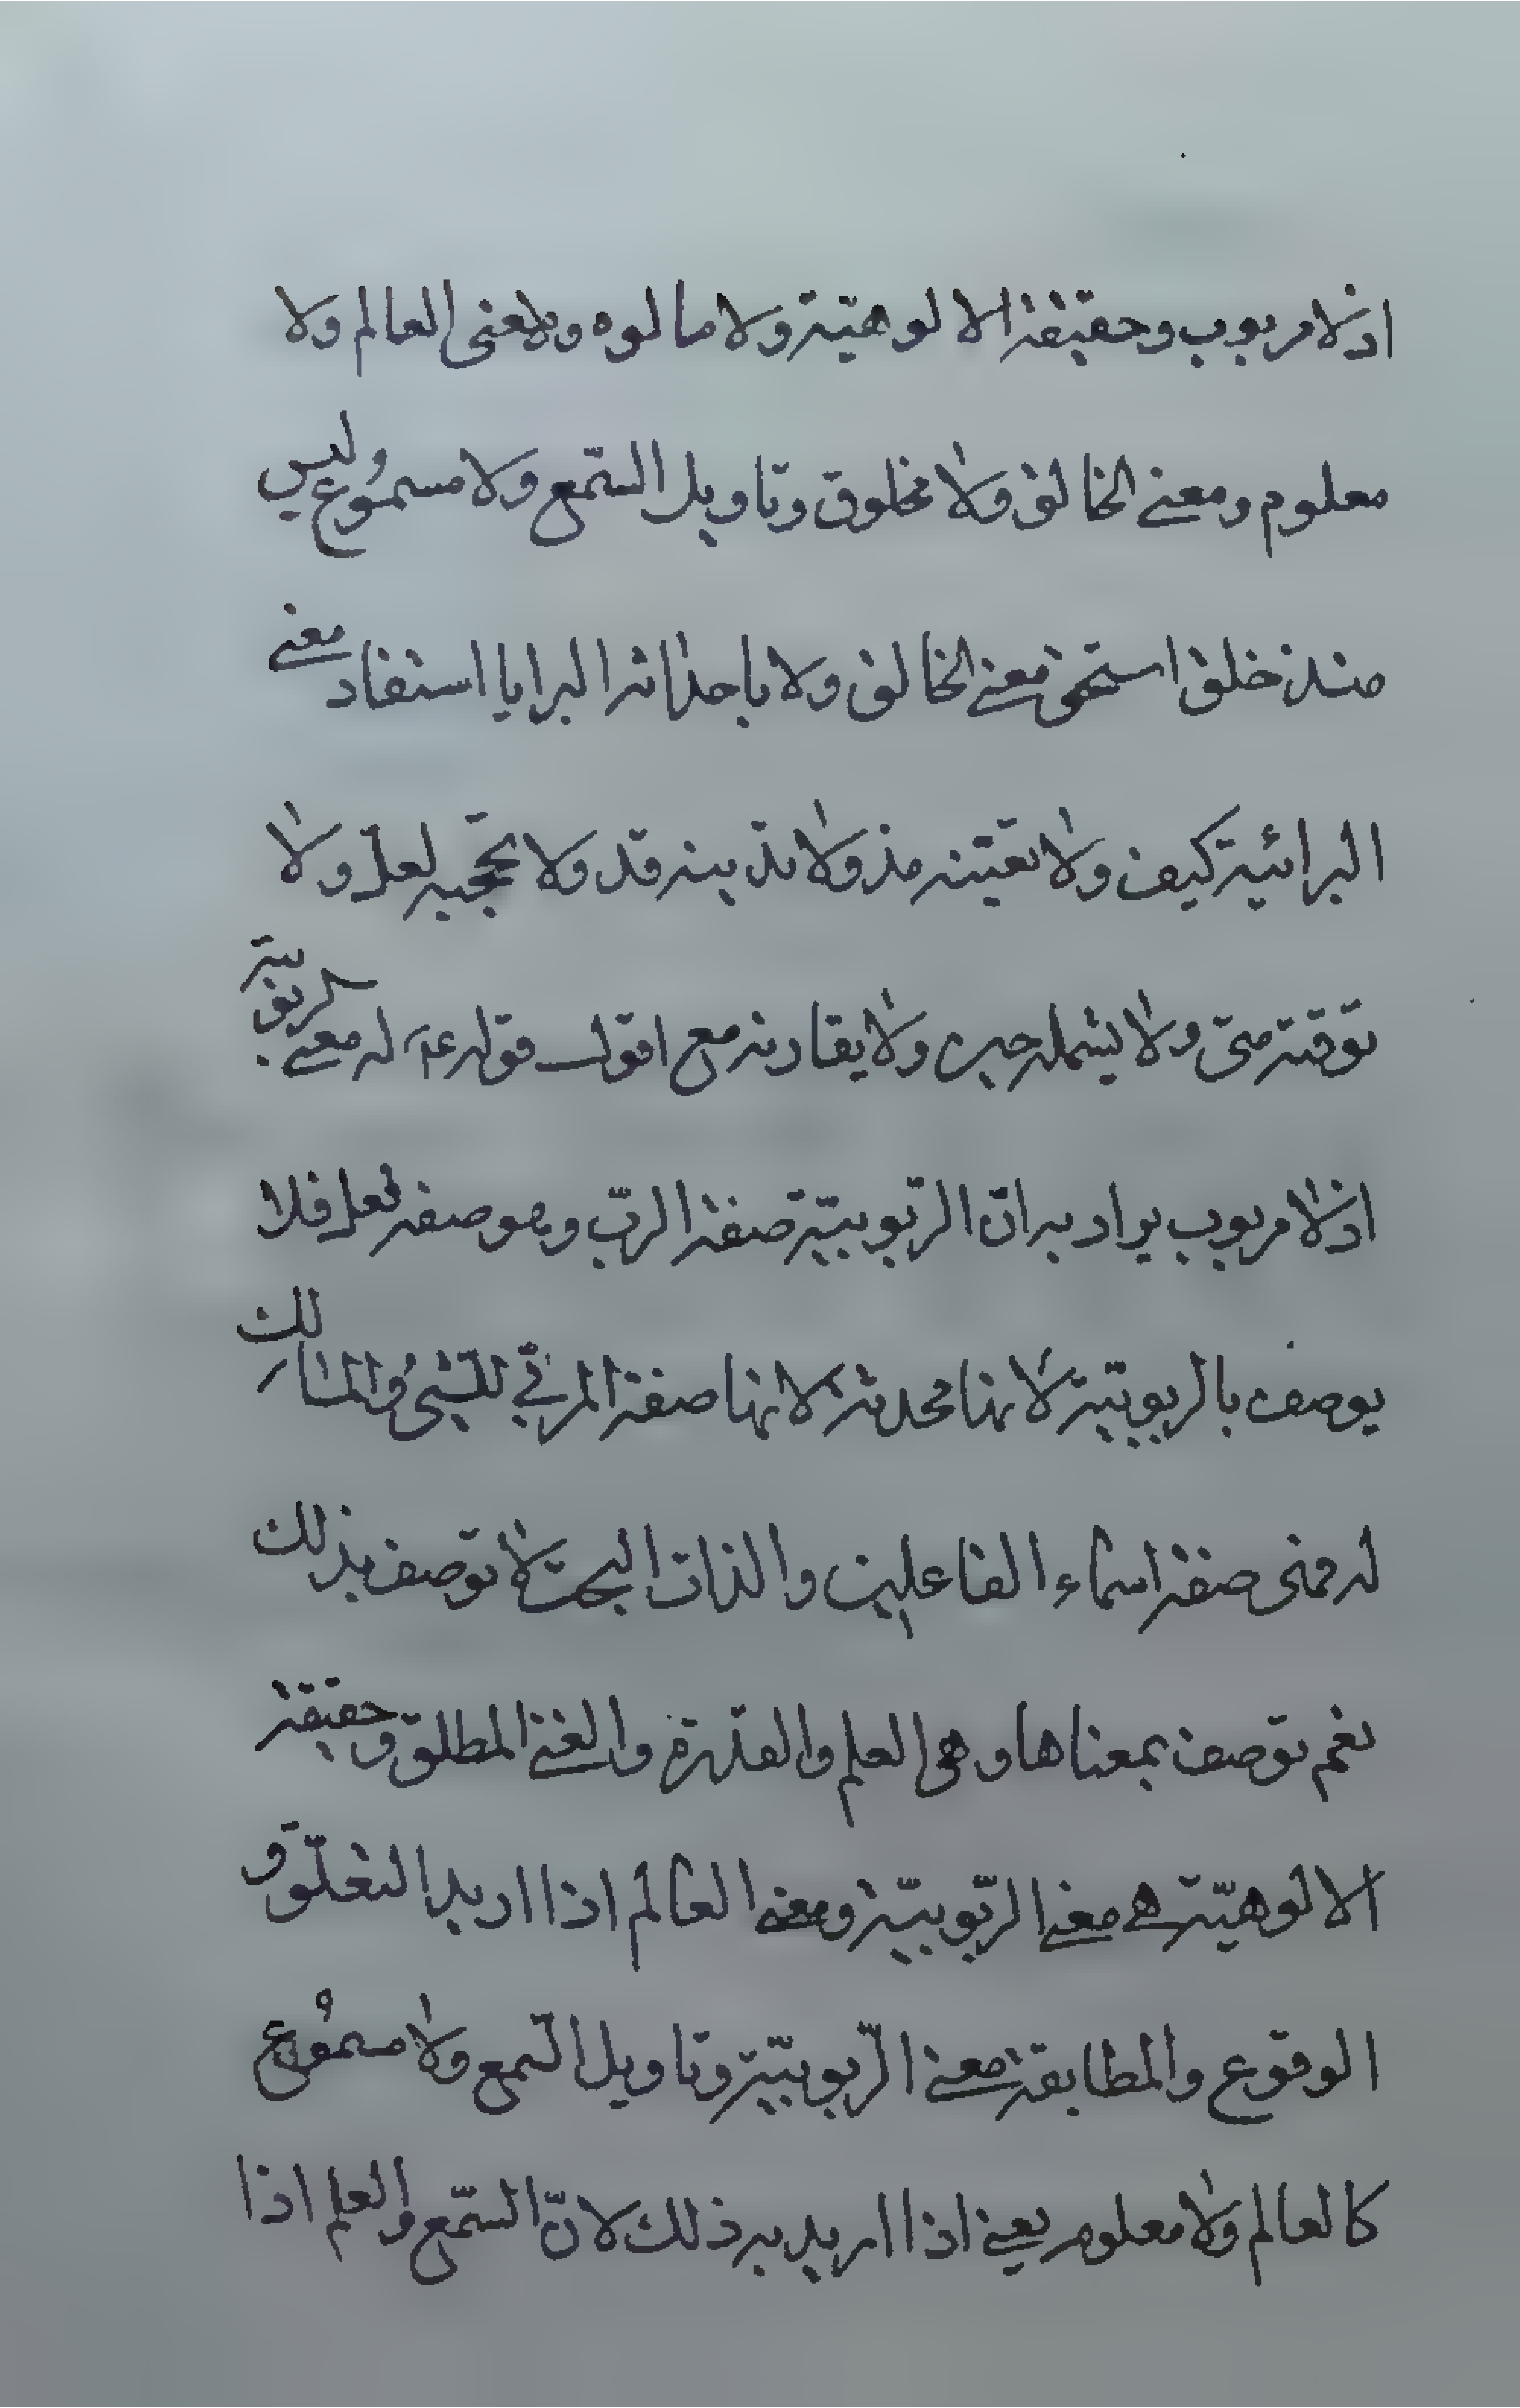 اذ لا مربوب وحقيقة الالوهيّة ولا مالوه ومعنى العالم ولا
معلوم ومعنى الخالق ولا مخلوق وتاويل السّمع ولا مسموع وليس
منذ خلق استحق معنى الخالق ولا باحداثه البرايا استفاد معنى
البرائية كيف ولا تغيّبه مذ ولا تدنيه قد ولا تحجبه لعلّ ولا
توقته متى ولا يشمله حين ولا يقارنه مع اقول قوله ع له معنى الربوبية
اذ لا مربوب يراد به انّ الربوبيّة صفة الربّ وهو صفة فعل فلا
يوصف بالربوبيّة لانها محدثة لانها صفة المربّي للشيء والمالك
له فمعنى صفة اسماء الفاعلين والذات البحت لا توصف بذلك
نعم توصف بمعناها وهي العلم والقدرة والغنى المطلق وحقيقة
الالوهيّة هي معنى الربّوبيّة ومعنى العالم اذا اريد التعلّق و
الوقوع والمطابقة معنى الرّبوبيّة وتاويل السّمع ولا مسموع
كالعالم ولا معلوم يعني اذا اريد به ذلك لانّ السّمع والعلم اذا